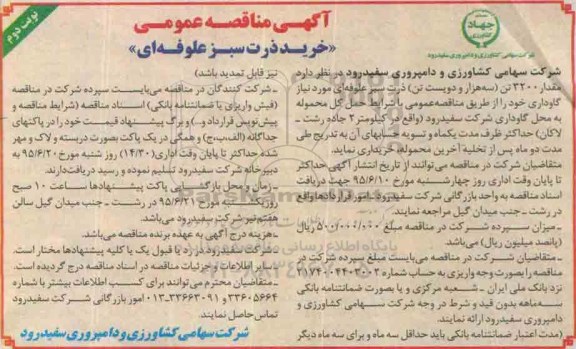 نوبت دوم
آگهی مناقصه عمومی
«خرید ذرت سبز علوفه‌ای»
جهاد
کشاورزی
شرکت سهامی کشاورزی و دامپروری سفیدرود
شرکت سهامی کشاورزی و دامپروری سفیدرود در نظر دارد
مقدار ۳۲۰۰ تن (سه‌هزار و دویست تن) ذرت سبز علوفه‌ای مورد نیاز
گاوداری خود را از طریق مناقصه‌عمومی با شرایط حمل کل محموله
به محل گاوداری شرکت سفیدرود (واقع در کیلومتر ۲ جاده رشت ـ
لاکان) حداکثر ظرف مدت یکماه و تسویه حسابهای آن به تدریج طی
مدت دو ماه پس از تخلیه آخرین محموله، خریداری نماید.
متقاضیان شرکت در مناقصه می‌توانند از تاریخ انتشار آگهی حداکثر
تا پایان وقت اداری روز چهارشنبه مورخ ۹۵/۶/۱۰ جهت دریافت
اسناد مناقصه به واحد بازرگانی شرکت سفیدرود، امور قراردادها واقع
در رشت ـ جنب میدان گیل مراجعه نمایند.
ـ میزان سپرده شرکت در مناقصه مبلغ ۵۰۰/۰۰۰/۰۰۰ ریال
(پانصد میلیون ریال) می‌باشد.
ـ متقاضیان شرکت در مناقصه می‌بایست مبلغ سپرده شرکت در
مناقصه را بصورت وجه واریزی به حساب شماره
نزد بانک ملی ایران ـ شعبه مرکزی و یا بصورت ضمانتنامه بانکی
سه‌ماهه بدون قید و شرط در وجه شرکت سهامی کشاورزی و
دامپروری سفیدرود ارائه نمایند.
(مدت اعتبار ضمانتنامه بانکی باید حداقل سه ماه و برای سه ماه دیگر
نیز قابل تمدید باشد)
ـ شرکت کنندگان در مناقصه می‌بایست سپرده شرکت در مناقصه
(فیش واریزی یا ضمانتنامه بانکی) اسناد مناقصه (شرایط مناقصه و
پیش‌نویس قرارداد و...) و برگ پیشنهاد قیمت خود را در پاکتهای
جداگانه (الف،ب،ج) و همگی در یک پاکت بصورت دربسته و لاک و مهر
شده حداکثر تا پایان وقت اداری (۱۴/۳۰) روز شنبه مورخ ۹۵/۶/۲۰ به
دبیرخانه شرکت سفیدرود تسلیم نموده و رسید دریافت‌دارند.
ـ زمان و محل بازگشایی پاکت پیشنهادها ساعت ۱۰ صبح
روز یکشنبه مورخ ۹۵/۶/۲۱ در رشت ـ جنب میدان گیل سالن
هفتم‌تیر شرکت سفیدرود می‌باشد.
ـ هزینه درج آگهی به عهده برنده مناقصه می‌باشد.
ـ شرکت سفیدرود در رد یا قبول یک یا کلیه پیشنهادها مختار است.
ـ سایر اطلاعات و جزئیات مناقصه در اسناد مناقصه درج گردیده است.
ـ متقاضیان محترم می‌توانند برای کسب اطلاعات بیشتر با شماره
۳۳۶۰۵۶۶۴ و ۳۳۶۶۳۰۹۱-۰۱۳ امور بازرگانی شرکت سفیدرود
تماس حاصل نمایند.
شرکت سهامی کشاورزی و دامپروری سفیدرود